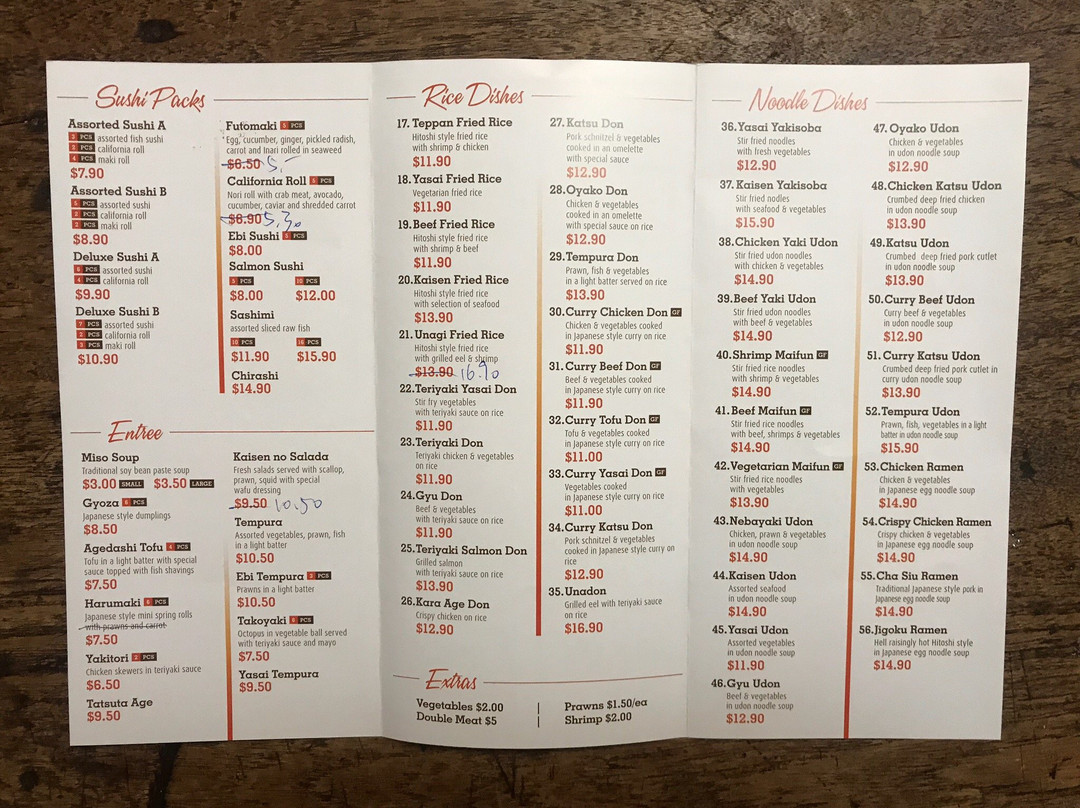 Sushi Packs
Assorted Sushi A
2 PCS assorted fish sushi
2 PCS california roll
4 PCS maki roll
$7.90
Assorted Sushi B
5 PCS assorted sushi
2 PCS california roll
2 PCS maki roll
$8.90
Deluxe Sushi A
6 PCS assorted sushi
4 PCS california roll
$9.90
Deluxe Sushi B
7 PCS assorted sushi
2 PCS california roll
3 PCS maki roll
$10.90
Futomaki 5 PCS
Egg, cucumber, ginger, pickled radish,
carrot and Inari rolled in seaweed
$6.50 5,-
California Roll 5 PCS
Nori roll with crab meat, avocado,
cucumber, caviar and shredded carrot
$6.90 5,30
Ebi Sushi 5 PCS
$8.00
Salmon Sushi
5 PCS 10 PCS
$8.00 $12.00
Sashimi
assorted sliced raw fish
10 PCS 16 PCS
$11.90 $15.90
Chirashi
$14.90
Entree
Miso Soup
Traditional soy bean paste soup
$3.00 SMALL $3.50 LARGE
Gyoza 6 PCS
Japanese style dumplings
$8.50
Agedashi Tofu 4 PCS
Tofu in a light batter with special
sauce topped with fish shavings
$7.50
Harumaki 8 PCS
Japanese style mini spring rolls
with prawns and carrot
$7.50
Yakitori 2 PCS
Chicken skewers in teriyaki sauce
$6.50
Tatsuta Age
$9.50
Kaisen no Salada
Fresh salads served with scallop,
prawn, squid with special
wafu dressing
$9.50 10.50
Tempura
Assorted vegetables, prawn, fish
in a light batter
$10.50
Ebi Tempura 3 PCS
Prawns in a light batter
$10.50
Takoyaki 8 PCS
Octopus in vegetable ball served
with teriyaki sauce and mayo
$7.50
Yasai Tempura
$9.50
Rice Dishes
17. Teppan Fried Rice
Hitoshi style fried rice
with shrimp & chicken
$11.90
18. Yasai Fried Rice
Vegetarian fried rice
$11.90
19. Beef Fried Rice
Hitoshi style fried rice
with shrimp & beef
$11.90
20. Kaisen Fried Rice
Hitoshi style fried rice
with selection of seafood
$13.90
21. Unagi Fried Rice
Hitoshi style fried rice
with grilled eel & shrimp
$13.90 16.90
22. Teriyaki Yasai Don
Stir fry vegetables
with teriyaki sauce on rice
$11.90
23. Teriyaki Don
Teriyaki chicken & vegetables
on rice
$11.90
24. Gyu Don
Beef & vegetables
with teriyaki sauce on rice
$11.90
25. Teriyaki Salmon Don
Grilled salmon
with teriyaki sauce on rice
$13.90
26. Kara Age Don
Crispy chicken on rice
$12.90
27. Katsu Don
Pork schnitzel & vegetables
cooked in an omelette
with special sauce
$12.90
28. Oyako Don
Chicken & vegetables
cooked in an omelette
with special sauce on rice
$12.90
29. Tempura Don
Prawn, fish & vegetables
in a light batter served on rice
$13.90
30. Curry Chicken Don GF
Chicken & vegetables cooked
in Japanese style curry on rice
$11.90
31. Curry Beef Don GF
Beef & vegetables cooked
in Japanese style curry on rice
$11.90
32. Curry Tofu Don GF
Tofu & vegetables cooked
in Japanese style curry on rice
$11.00
33. Curry Yasai Don GF
Vegetables cooked
in Japanese style curry on rice
$11.00
34. Curry Katsu Don
Pork schnitzel & vegetables
cooked in Japanese style curry on
rice
$12.90
35. Unadon
Grilled eel with teriyaki sauce
on rice
$16.90
Extras
Vegetables $2.00 | Prawns $1.50/ea
Double Meat $5 | Shrimp $2.00
Noodle Dishes
36. Yasai Yakisoba
Stir fried noodles
with fresh vegetables
$12.90
37. Kaisen Yakisoba
Stir fried nodles
with seafood & vegetables
$15.90
38. Chicken Yaki Udon
Stir fried udon noodles
with chicken & vegetables
$14.90
39. Beef Yaki Udon
Stir fried udon noodles
with beef & vegetables
$14.90
40. Shrimp Maifun GF
Stir fried rice noodles
with shrimp & vegetables
$14.90
41. Beef Maifun GF
Stir fried rice noodles
with beef, shrimps & vegetables
$14.90
42. Vegetarian Maifun GF
Stir fried rice noodles
with vegetables
$13.90
43. Nebayaki Udon
Chicken, prawn & vegetables
in udon noodle soup
$14.90
44. Kaisen Udon
Assorted seafood
in udon noodle soup
$14.90
45. Yasai Udon
Assorted vegetables
in udon noodle soup
$11.90
46. Gyu Udon
Beef & vegetables
in udon noodle soup
$12.90
47. Oyako Udon
Chicken & vegetables
in udon noodle soup
$12.90
48. Chicken Katsu Udon
Crumbed deep fried chicken
in udon noodle soup
$13.90
49. Katsu Udon
Crumbed deep fried pork cutlet
in udon noodle soup
$13.90
50. Curry Beef Udon
Curry beef & vegetables
in udon noodle soup
$12.90
51. Curry Katsu Udon
Crumbed deep fried pork cutlet in
curry udon noodle soup
$13.90
52. Tempura Udon
Prawn, fish, vegetables in a light
batter in udon noodle soup
$15.90
53. Chicken Ramen
Chicken & vegetables
in Japanese egg noodle soup
$14.90
54. Crispy Chicken Ramen
Crispy chicken & vegetables
in Japanese egg noodle soup
$14.90
55. Cha Siu Ramen
Traditional Japanese style pork in
Japanese egg noodle soup
$14.90
56. Jigoku Ramen
Hell raisingly hot Hitoshi style
in Japanese egg noodle soup
$14.90